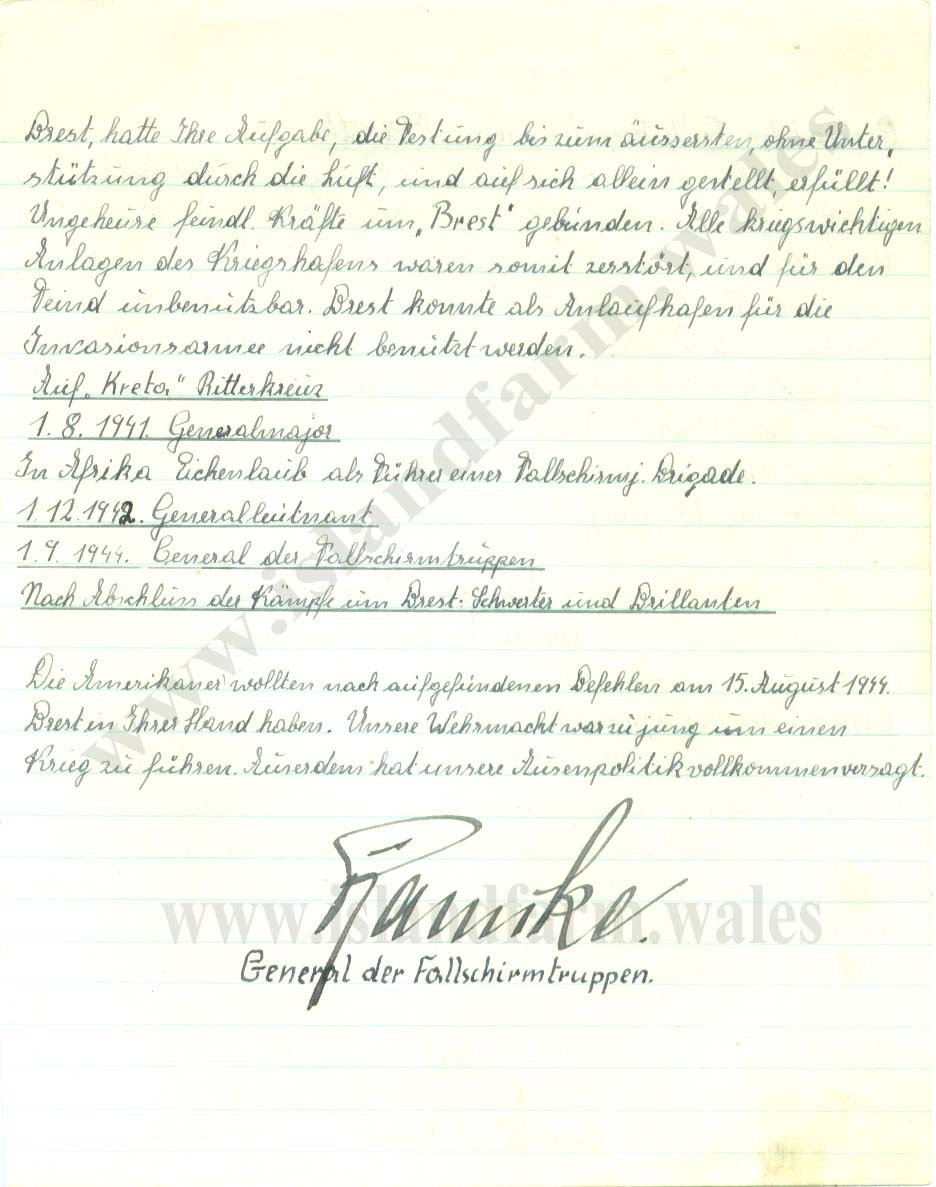 Brest, hatte Ihre Aufgabe, die Festung bis zum äussersten, ohne Unter„
stützung durch die Luft, und auf sich allein gestellt, erfüllt!
Ungeheure feindl. Kräfte um „Brest“ gebunden. Alle kriegswichtigen
Anlagen des Kriegshafens waren somit zerstört, und für den
Feind unbenutzbar. Brest konnte als Anlaufhafen für die
Invasionsarmee nicht benützt werden.
Auf „Kreta“ Ritterkreuz
1. 8. 1941. Generalmajor
In Afrika Eichenlaub als Führer einer Fallschirmj. Brigade.
1.12.1942. Generalleutnant
1.9. 1944. General der Fallschirmtruppen
Nach Abschluss der Kämpfe um Brest: Schwerter und Brillanten
Die Amerikaner wollten nach aufgefundenen Befehlen am 15. August 1944.
Brest in Ihrer Hand haben. Unsere Wehrmacht war zu jung um einen
Krieg zu führen. Auserdem hat unsere Ausenpolitik vollkommen versagt.
Ramcke.
General der Fallschirmtruppen.
www.islandfarm.wales
www.islandfarm.wales